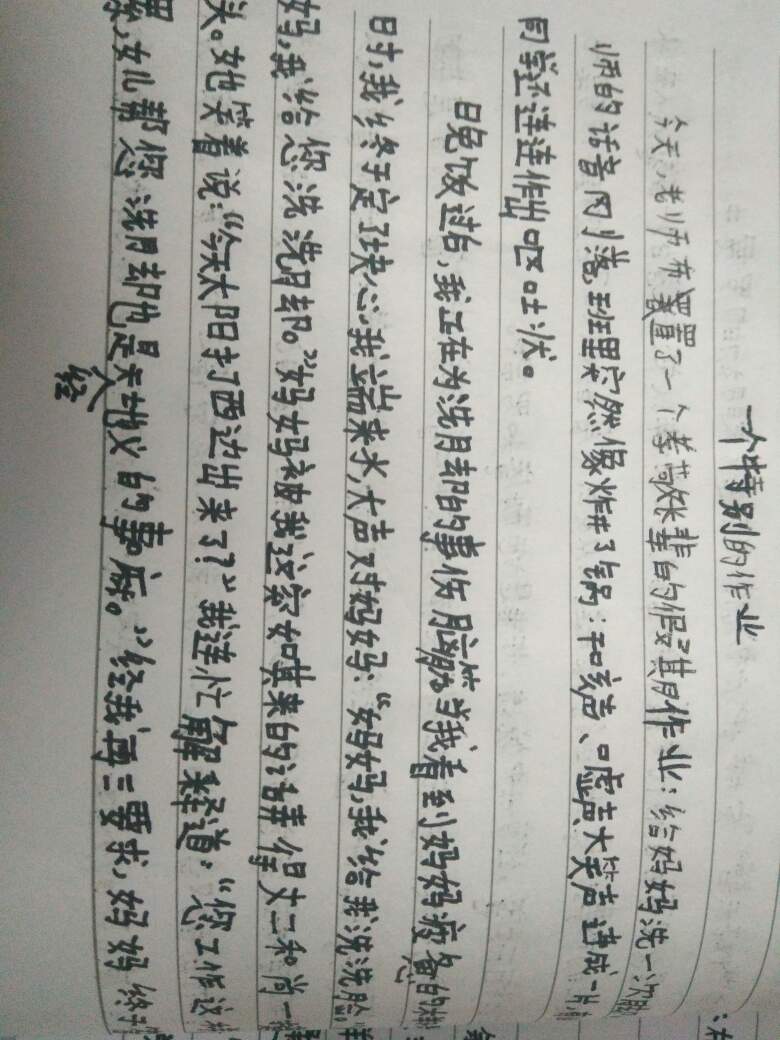 一个特别的作业
今天,老师布置了一个孝敬长辈的假期作业:给妈妈洗一次脚
师的话音刚落,班里突然像炸开了锅:和亥声、嘘声、大笑声连成一片,有
同学还连连作出呕吐状。
晚饭过后,我正在为洗脚的事伤脑筋,当我看到妈妈疲惫的样
时,我终于定了决心,我端来水,大声对妈妈:“妈妈,我给我洗洗脸。
妈,我给您洗洗脚。”妈妈被我这突如其来的话弄得丈二和尚一
头。她笑着说:“今天太阳打西边出来了?”我连忙解释道:“您工作这
累,女儿帮您洗脚也是天经地义的事嘛。”经我再三要求,妈妈终于